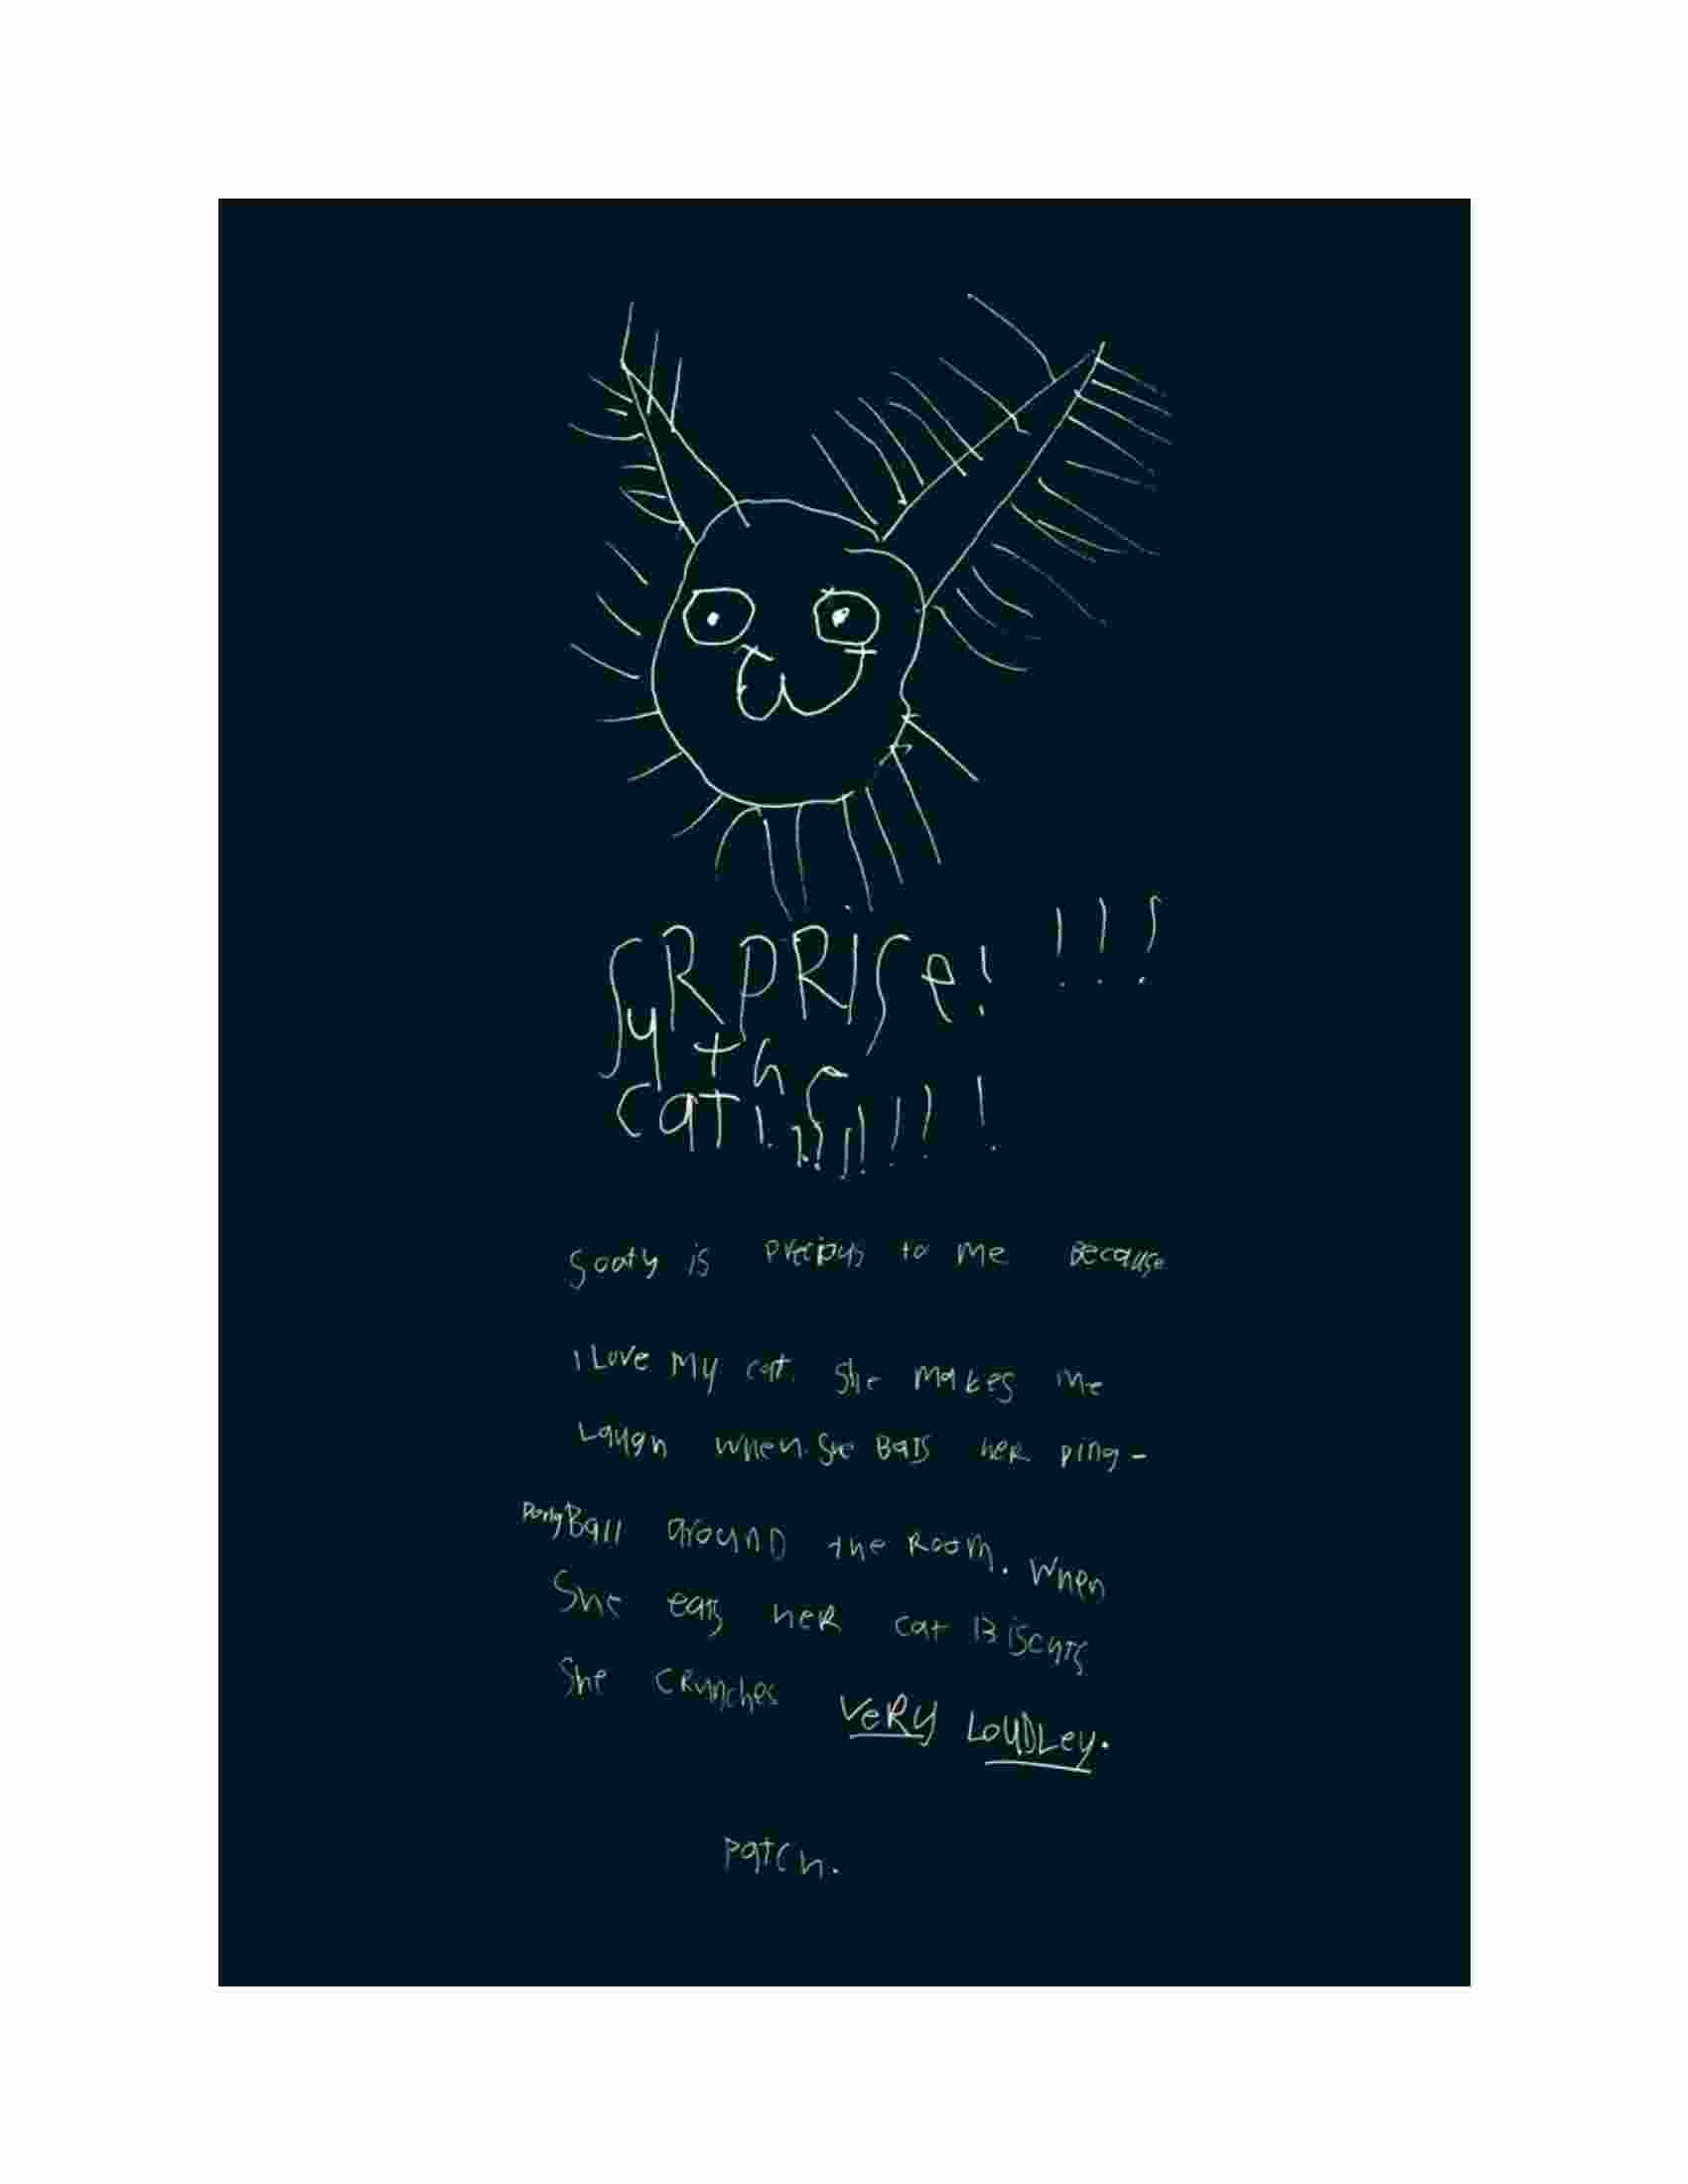 SuRPRISe! !!!
the
cat!!!!!!!!!
Sooty is precious to me Because
i Love My cat. She makes me
Laugh when she Bats her ping-
pong Ball around the Room. When
She eats heR cat Biscuts
She cRunches VeRy LouDLey.
patch.